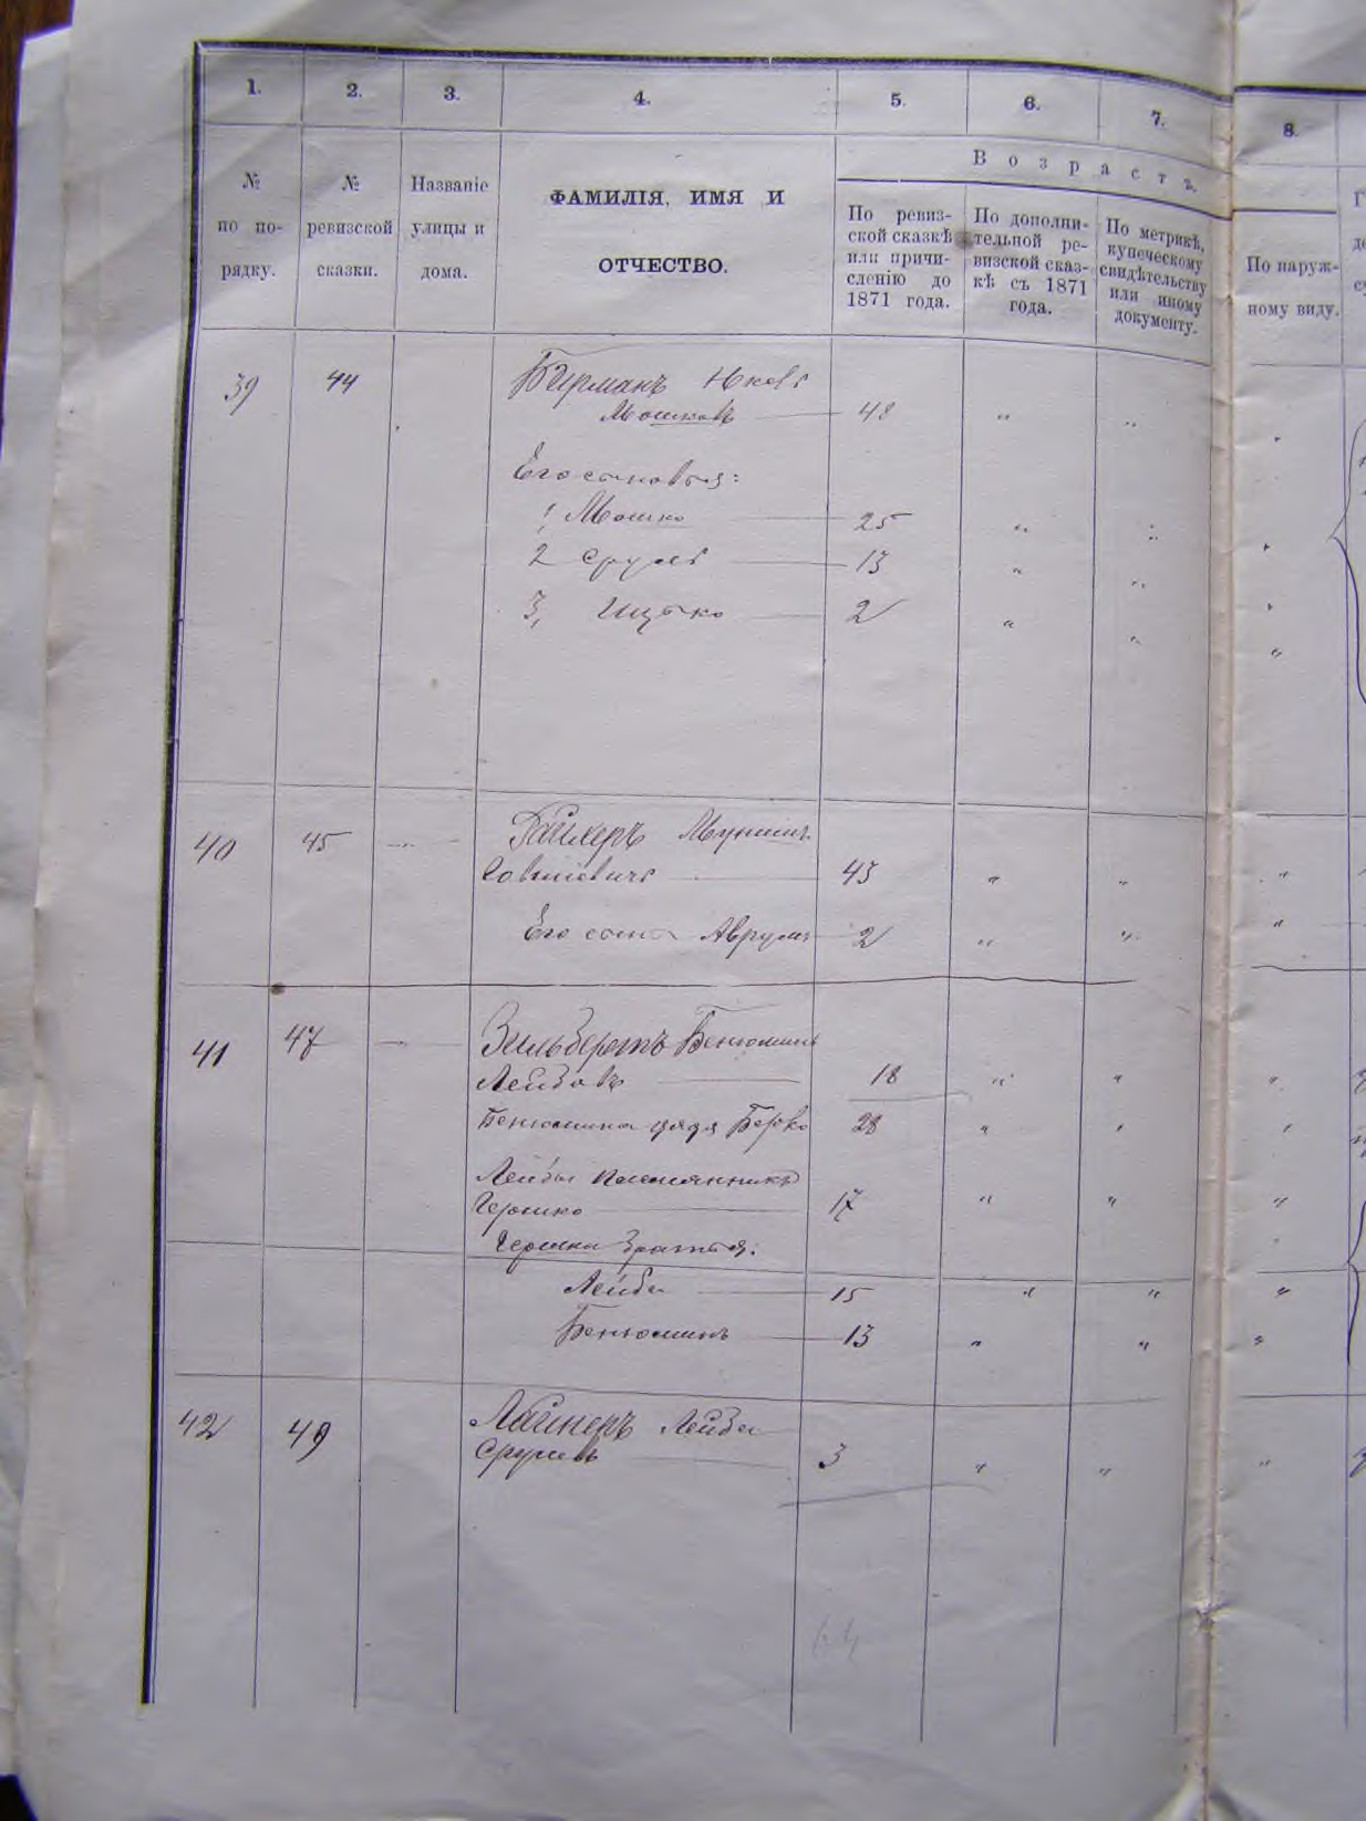 1. 2. 3. 4. 5. 6. 7. 8.
Возрастъ.
№ по по-рядку.
№ ревизской сказки.
Названіе улицы и дома.
ФАМИЛІЯ, ИМЯ И
ОТЧЕСТВО.
По ревиз-
ской сказкѣ
или причи-
сленію до
1871 года.
По дополни-
тельной ре-
визской сказ-
кѣ съ 1871
года.
По метрикѣ,
купеческому
свидѣтельству
или иному
документу.
По наруж-
ному виду.
39 44 Берманъ
Мошковъ 48 " "
Его сыновья:
1 Мошко 25 " "
2 Сруль 13 " "
3, Ицько 2 " " "
40 45 Мунишъ
43 " " "
Его сынъ Аврумъ 2 " " "
41 47 Зильберотъ Бенюминъ
Лейзовъ 18 " " "
Бенюмина дядя Берко 28 " "
Лейбы племянникъ
Гершко 17 " " "
Гершка братья:
Лейба 15 " " "
Бенюминъ 13 " " "
42 49 Лайнеръ Лейба
Срулевъ 3 " " "